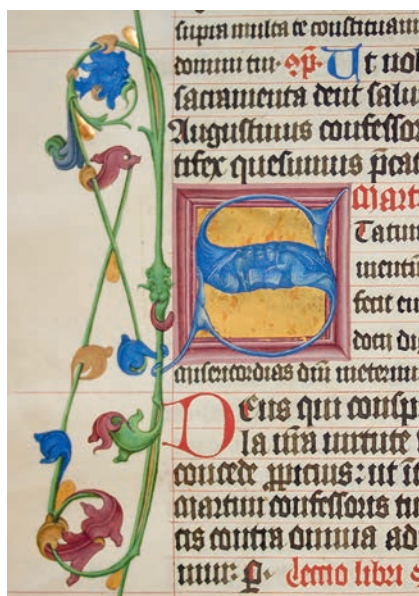 supra multa te constituam
domini tui. Ut nob
sacramenta tent salu
Augustinus confessor
tifex quesumus p̄cat
Marti
S Tatuit
fecit
misericordias dn̄i ineternum
Deus qui consp
la n̄ra uirtute
concede ꝓpicius: ut in
martini confessoris tu
cis contra omnia ad
mur: lectio libri s